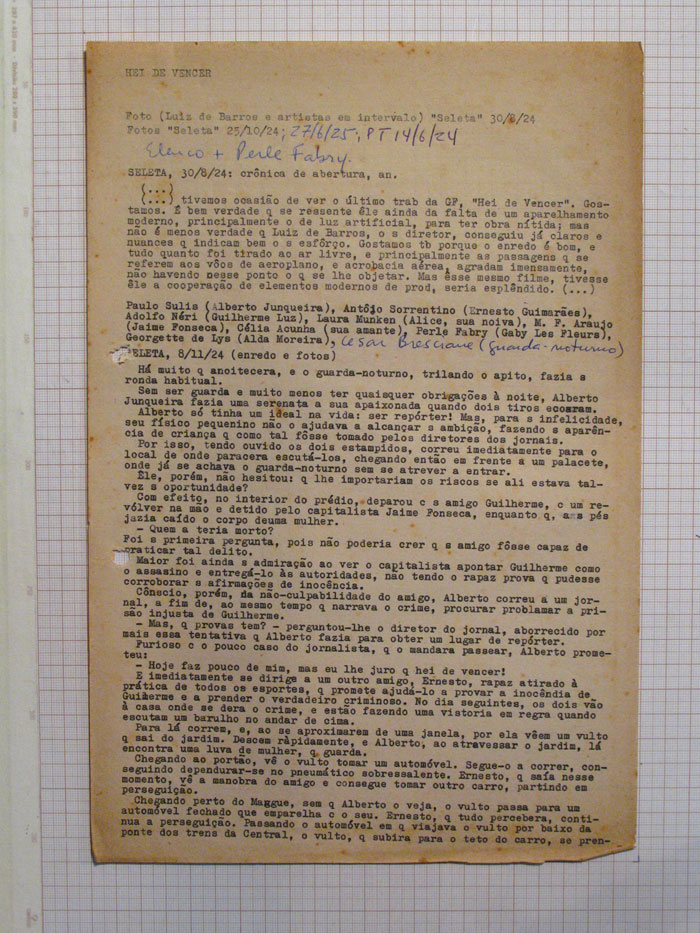 HEI DE VENCER
Foto (Luiz de Barros e artistas em intervalo) "Seleta" 30/8/24
Fotos "Seleta" 25/10/24; 27/6/25, PT 14/6/24
Elenco + Perle Fabry.
SELETA, 30/8/24: crônica de abertura, an.
(...)
(...) tivemos ocasião de ver o último trab da GF, "Hei de Vencer". Gos-
tamos. É bem verdade q se ressente êle ainda da falta de um aparelhamento
moderno, principalmente o de luz artificial, para ter obra nítida; mas
não é menos verdade q Luiz de Barros, o s diretor, conseguiu já claros e
nuances q indicam bem o s esfôrço. Gostamos tb porque o enredo é bom, e
tudo quanto foi tirado ao ar livre, e principalmente as passagens q se
referem aos vôos de aeroplano, e acrobacia aérea, agradam imensamente,
não havendo nesse ponto o q se lhe objetar. Mas êsse mesmo filme, tivesse
êle a cooperação de elementos modernos de prod, seria esplêndido. (...)
Paulo Sulis (Alberto Junqueira), Antôjo Sorrentino (Ernesto Guimarães),
Adolfo Néri (Guilherme Luz), Laura Munken (Alice, sua noiva), M. F. Araujo
(Jaime Fonseca), Célia Acunha (sua amante), Perle Fabry (Gaby Les Fleurs),
Georgette de Lys (Alda Moreira), Cesar Bresciane (guarda-noturno)
SELETA, 8/11/24 (enredo e fotos)
Há muito q anoitecera, e o guarda-noturno, trilando o apito, fazia s
ronda habitual.
Sem ser guarda e muito menos ter quaisquer obrigações à noite, Alberto
Junqueira fazia uma serenata a sua apaixonada quando dois tiros ecoaram.
Alberto só tinha um ideal na vida: ser repórter! Mas, para s infelicidade,
seu físico pequenino não o ajudava a alcançar s ambição, fazendo s aparên-
cia de criança q como tal fôsse tomado pelos diretores dos jornais.
Por isso, tendo ouvido os dois estampidos, correu imediatamente para o
local de onde paracera escutá-los, chegando então em frente a um palacete,
onde já se achava o guarda-noturno sem se atrever a entrar.
Êle, porém, não hesitou: q lhe importariam os riscos se ali estava tal-
vez s oportunidade?
Com efeito, no interior do prédio, deparou c s amigo Guilherme, c um re-
vólver na mão e detido pelo capitalista Jaime Fonseca, enquanto q, aos pés
jazia caído o corpo deuma mulher.
- Quem a teria morto?
Foi s primeira pergunta, pois não poderia crer q s amigo fôsse capaz de
praticar tal delito.
Maior foi ainda s admiração ao ver o capitalista apontar Guilherme como
o assasino e entregá-lo às autoridades, não tendo o rapaz prova q pudesse
corroborar s afirmações de inocência.
Cônscio, porém, da não-culpabilidade do amigo, Alberto correu a um jor-
nal, a fim de, ao mesmo tempo q narrava o crime, procurar problamar a pri-
são injusta de Guilherme.
- Mas, q provas tem? - perguntou-lhe o diretor do jornal, aborrecido por
mais essa tentativa q Alberto fazia para obter um lugar de repórter.
Furioso c o pouco caso do jornalista, q o mandara passear, Alberto prome-
teu:
- Hoje faz pouco de mim, mas eu lhe juro q hei de vencer!
E imediatamente se dirige a um outro amigo, Ernesto, rapaz atirado à
prática de todos os esportes, q promete ajudá-lo a provar a inocência de
Guilherme e a prender o verdadeiro criminoso. No dia seguintes, os dois vão
à casa onde se dera o crime, e estão fazendo uma vistoria em regra quando
escutam um barulho no andar de cima.
Para lá correm, e, ao se aproximarem de uma janela, por ela vêem um vulto
q sai do jardim. Descem ràpidamente, e Alberto, ao atravessar o jardim, lá
encontra uma luva de mulher, q guarda.
Chegando ao portão, vê o vulto tomar um automóvel. Segue-o a correr, con-
seguindo dependurar-se no pneumático sobressalente. Ernesto, q saía nesse
momento, vê a manobra do amigo e consegue tomar outro carro, partindo em
perseguição.
Chegando perto do Mangue, sem q Alberto o veja, o vulto passa para um
automóvel fechado que emparelha c o seu. Ernesto, q tudo percebera, conti-
nua a perseguição. Passando o automóvel em q viajava o vulto por baixo da
ponte dos trens da Central, o vulto, q subira para o teto do carro, se pren-